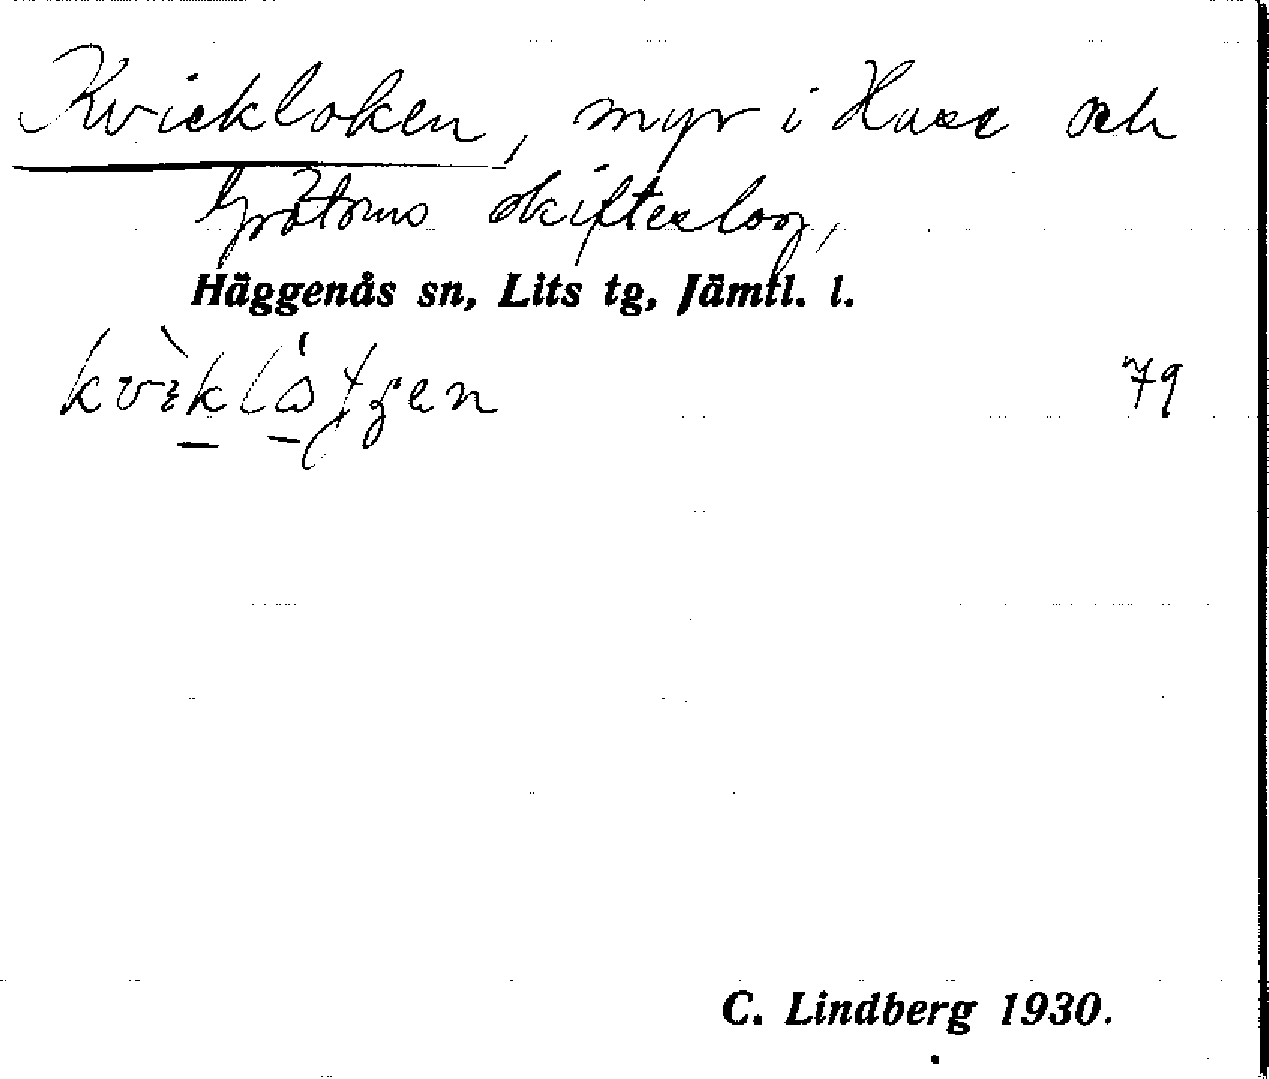 Kvickloken, myr i Huse och
Gråtorns skifteslag,
Häggenås sn, Lits tg, Jämtl. l.
79
C. Lindberg 1930.